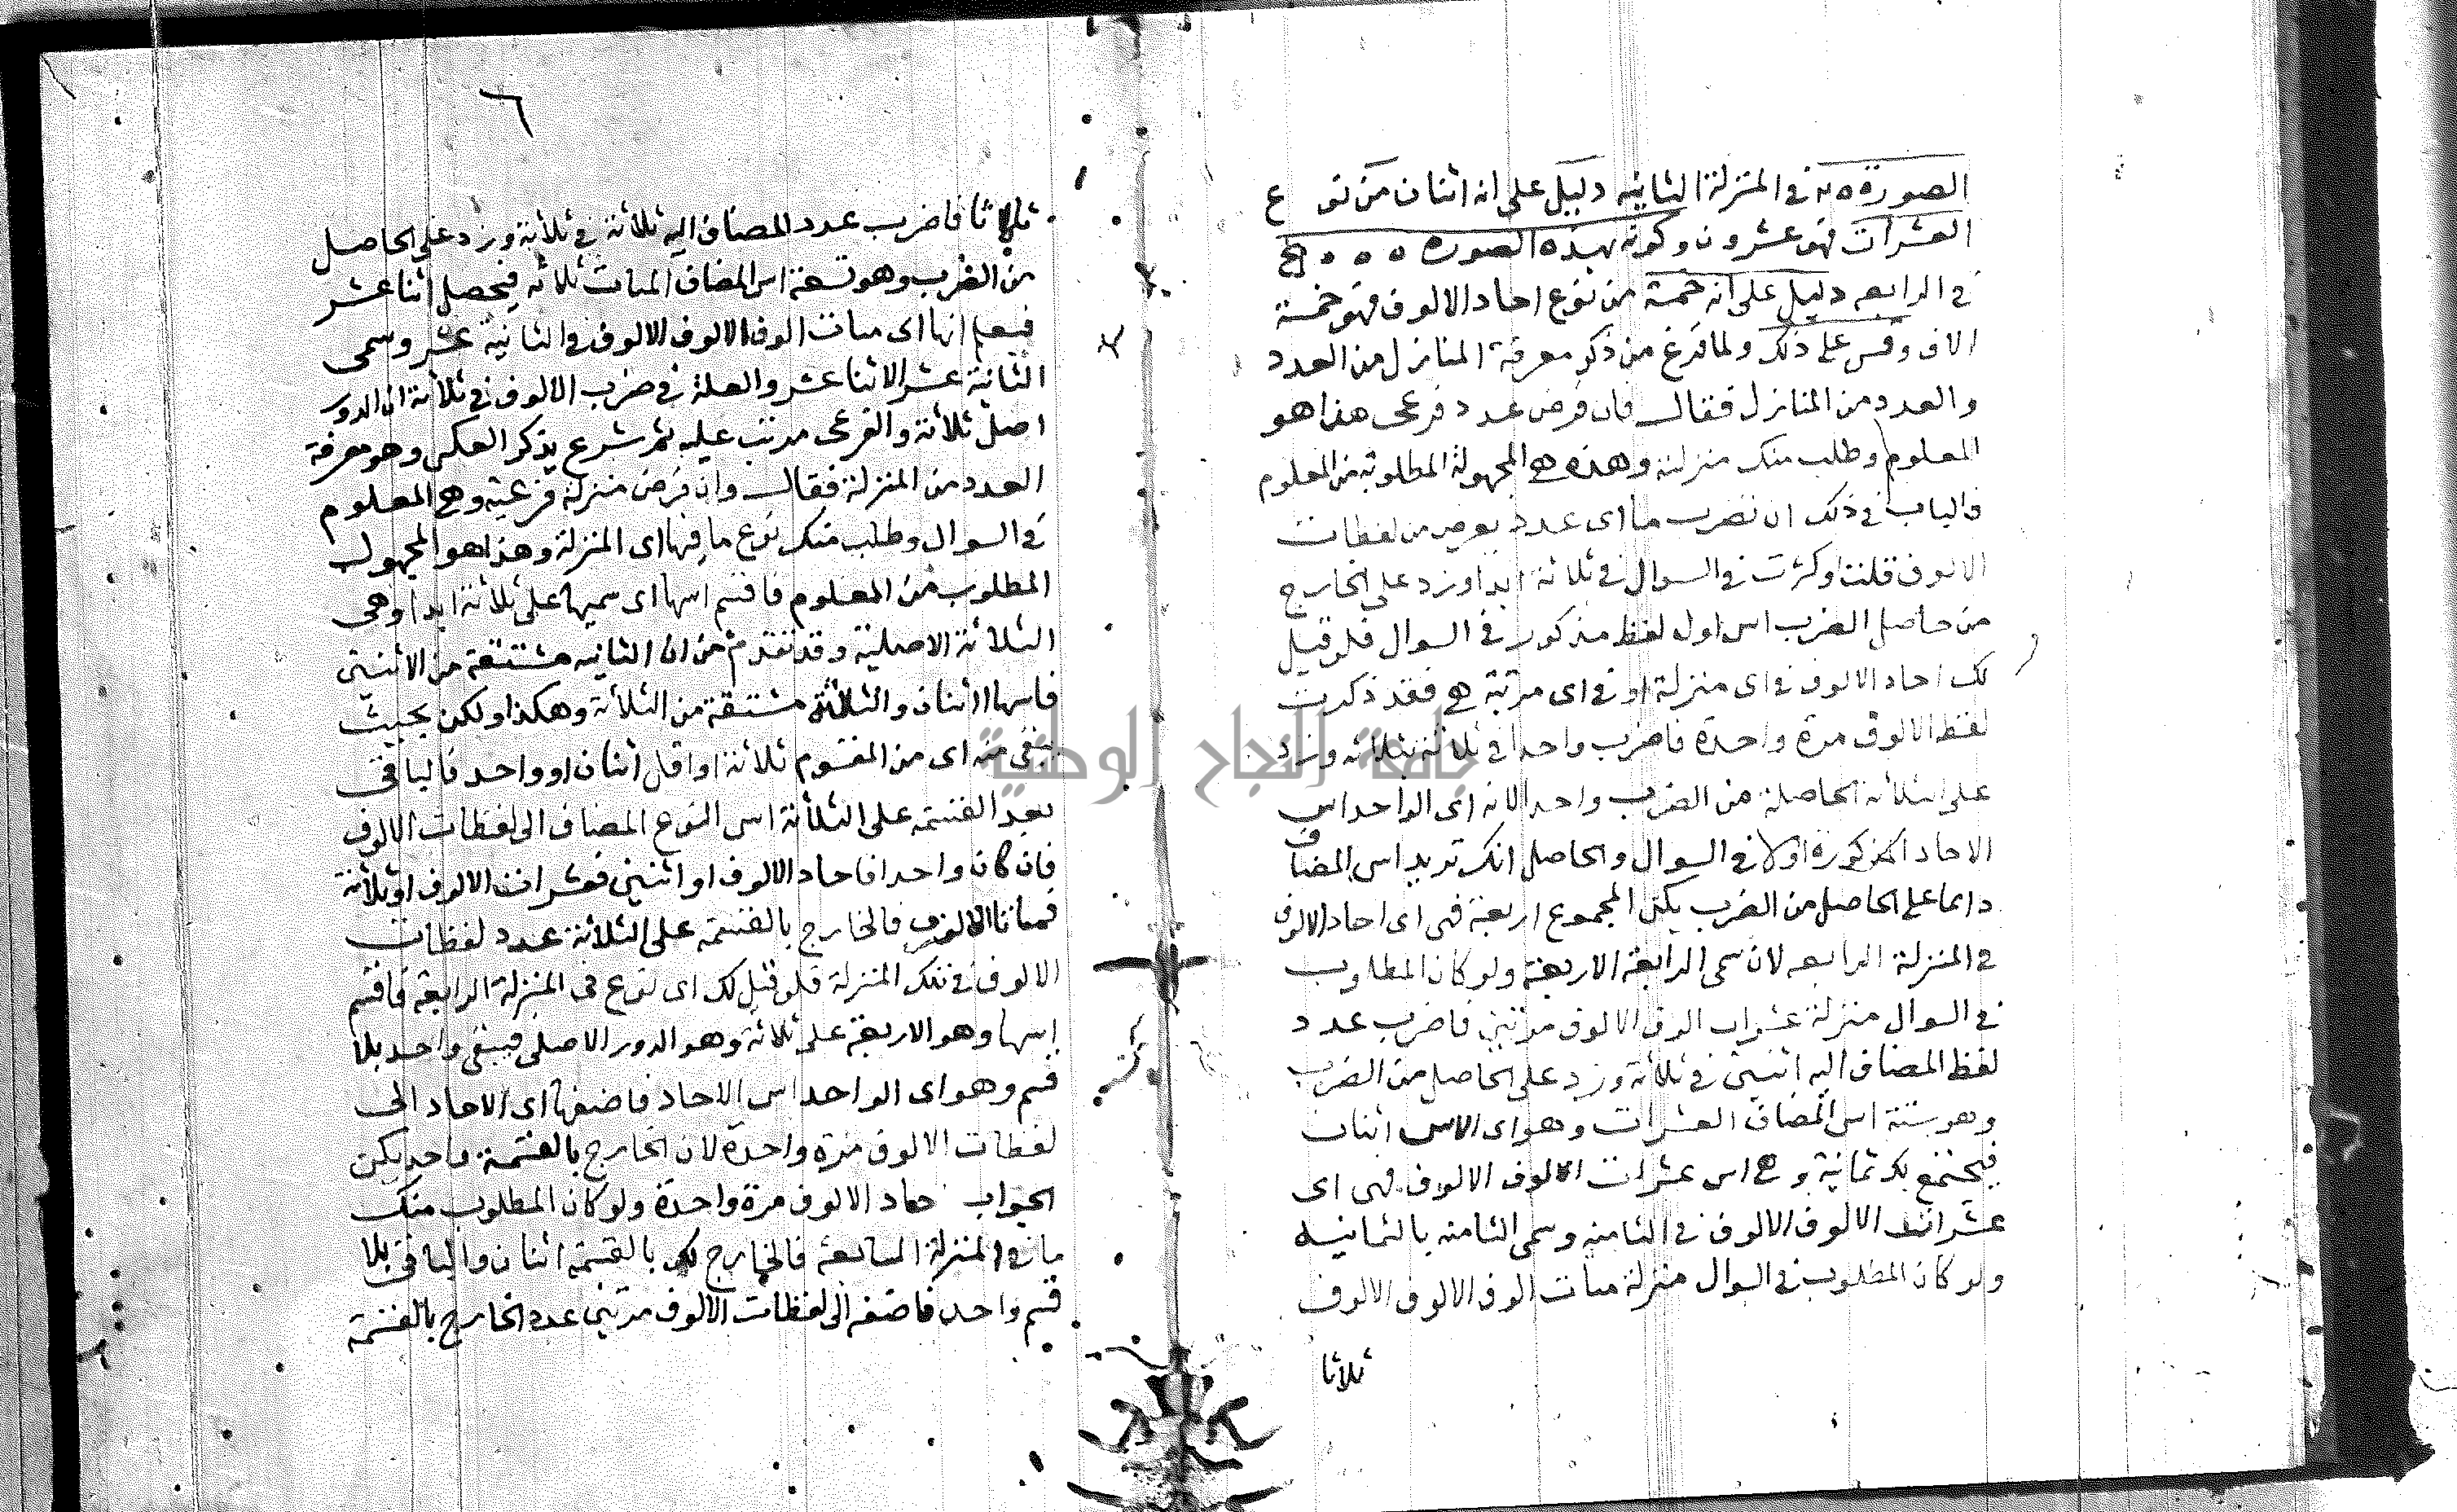 الصورة ٢٥ في المنزلة الثانيه دليل على انه اثنان من نوع
العشرات فهو عشرون وكونه بهذه الصورة ٥٠٠٠
في الرابعه دليل على انه خمسة من نوع احاد الالوف فهو خمسة
الاف وقس على ذلك ولما فرغ من ذكر معرفة المنازل من العدد
والعدد من المنازل فقال فان فرض عدد فرعى هذا هو
المعلوم وطلب منك منزلته وهذه هي المجهولة المطلوبة من المعلوم
فالباب في ذلك ان تضرب ما اى عدد من لفظات
الالوف قلت او كثرت في السوال في ثلاثة ابدا وزد على الخارج
من حاصل الضرب اس اول لفظ مذكور في السوال فلو قيل
لك احاد الالوف في اى منزلة او في اى مرتبة هي فقد ذكرت
لفظ الالوف مرة واحدة فاضرب واحدا في ثلاثة بثلاثه وزد
على الثلاثة الحاصلة من الضرب واحد الانه اى الواحد اس
الاحاد المذكورة اولا في السوال والحاصل انك تزيد اس المضاف
دايما على الحاصل من الضرب يكن المجموع اربعة فهى اى احاد الالوف
في المنزلة الرابعه لان سمى الرابعة الاربعة ولو كان المطلوب
في السوال منزلة عشرات الوف الالوف مرتين فاضرب عدد
لفظ المضاف اليه اثنين في ثلاثة وزد على الحاصل من الضرب
وهو ستة اس المضاف العشرات وهو اى الاس اثنان
فيجتمع بك ثمانية وهي اس عشرات الالوف الالوف فهى اى
عشرات الالوف الالوف في الثامنه وسمى الثامنه بالثمانيه
ولو كان المطلوب في السوال منزلة مئات الوف الالوف الالوف
ثلاثا
٦
ثلاثا فاضرب عدد المضاف اليه ثلاثة في ثلاثة وزد على الحاصل
من الضرب وهو تسعة اس المضاف المئات ثلاثه فيحصل اثنا عشر
فيعلم انها اى مئات الوف الالوف الالوف في الثانية عشر وسمى
الثانية عشر الاثنا عشر والعلة في ضرب الالوف في ثلاثة ان الدور
اصل ثلاثة والفرعى مرتب عليه ثم شرع يذكر العكس وهو معرفة
العدد من المنزلة فقال وان فرض منزلة فرعية وهي المعلوم
في السوال وطلب منك نوع ما فيها اى المنزلة وهذا هو المجهول
المطلوب من المعلوم فاقسم اسها اى سميها على ثلاثة ابدا وهى
الثلاثة الاصلية وقد تقدم من ان الثانيه مشتقة من الاثنين
فاسها اثنان والثلاثة مشتقة من الثلاثة وهكذا ولكن بحيث
يبقى منه اى من المقسوم ثلاثة او اقل اثنان او واحد فالباقى
بعد القسمه على الثلاثة اس النوع المضاف الى لفظات الالوف
فان كان واحدا فاحاد الالوف او اثنين فعشرات الالوف او ثلاثة
فمئات الالوف فالخارج بالقسمه على الثلاثة عدد لفظات
الالوف في تلك المنزلة فلو قيل لك اى نوع في المنزلة الرابعة فاقسم
اسها وهو الاربعة على ثلاثة وهو الدور الاصلى فيبقى واحد بلا
قسم وهو اى الواحد اس الاحاد فاضفها اى الاحاد الى
لفظات الالوف مرة واحدة لان الخارج بالقسمة واحد يكن
الجواب احاد الالوف مرة واحدة ولو كان المطلوب منك
ما في المنزلة السابعة فالخارج لك بالقسمة اثنان والباقى بلا
قسم واحد فاضفه الى لفظات الالوف مرتين عدد الخارج بالقسمة
جامعة النجاح الوطنية